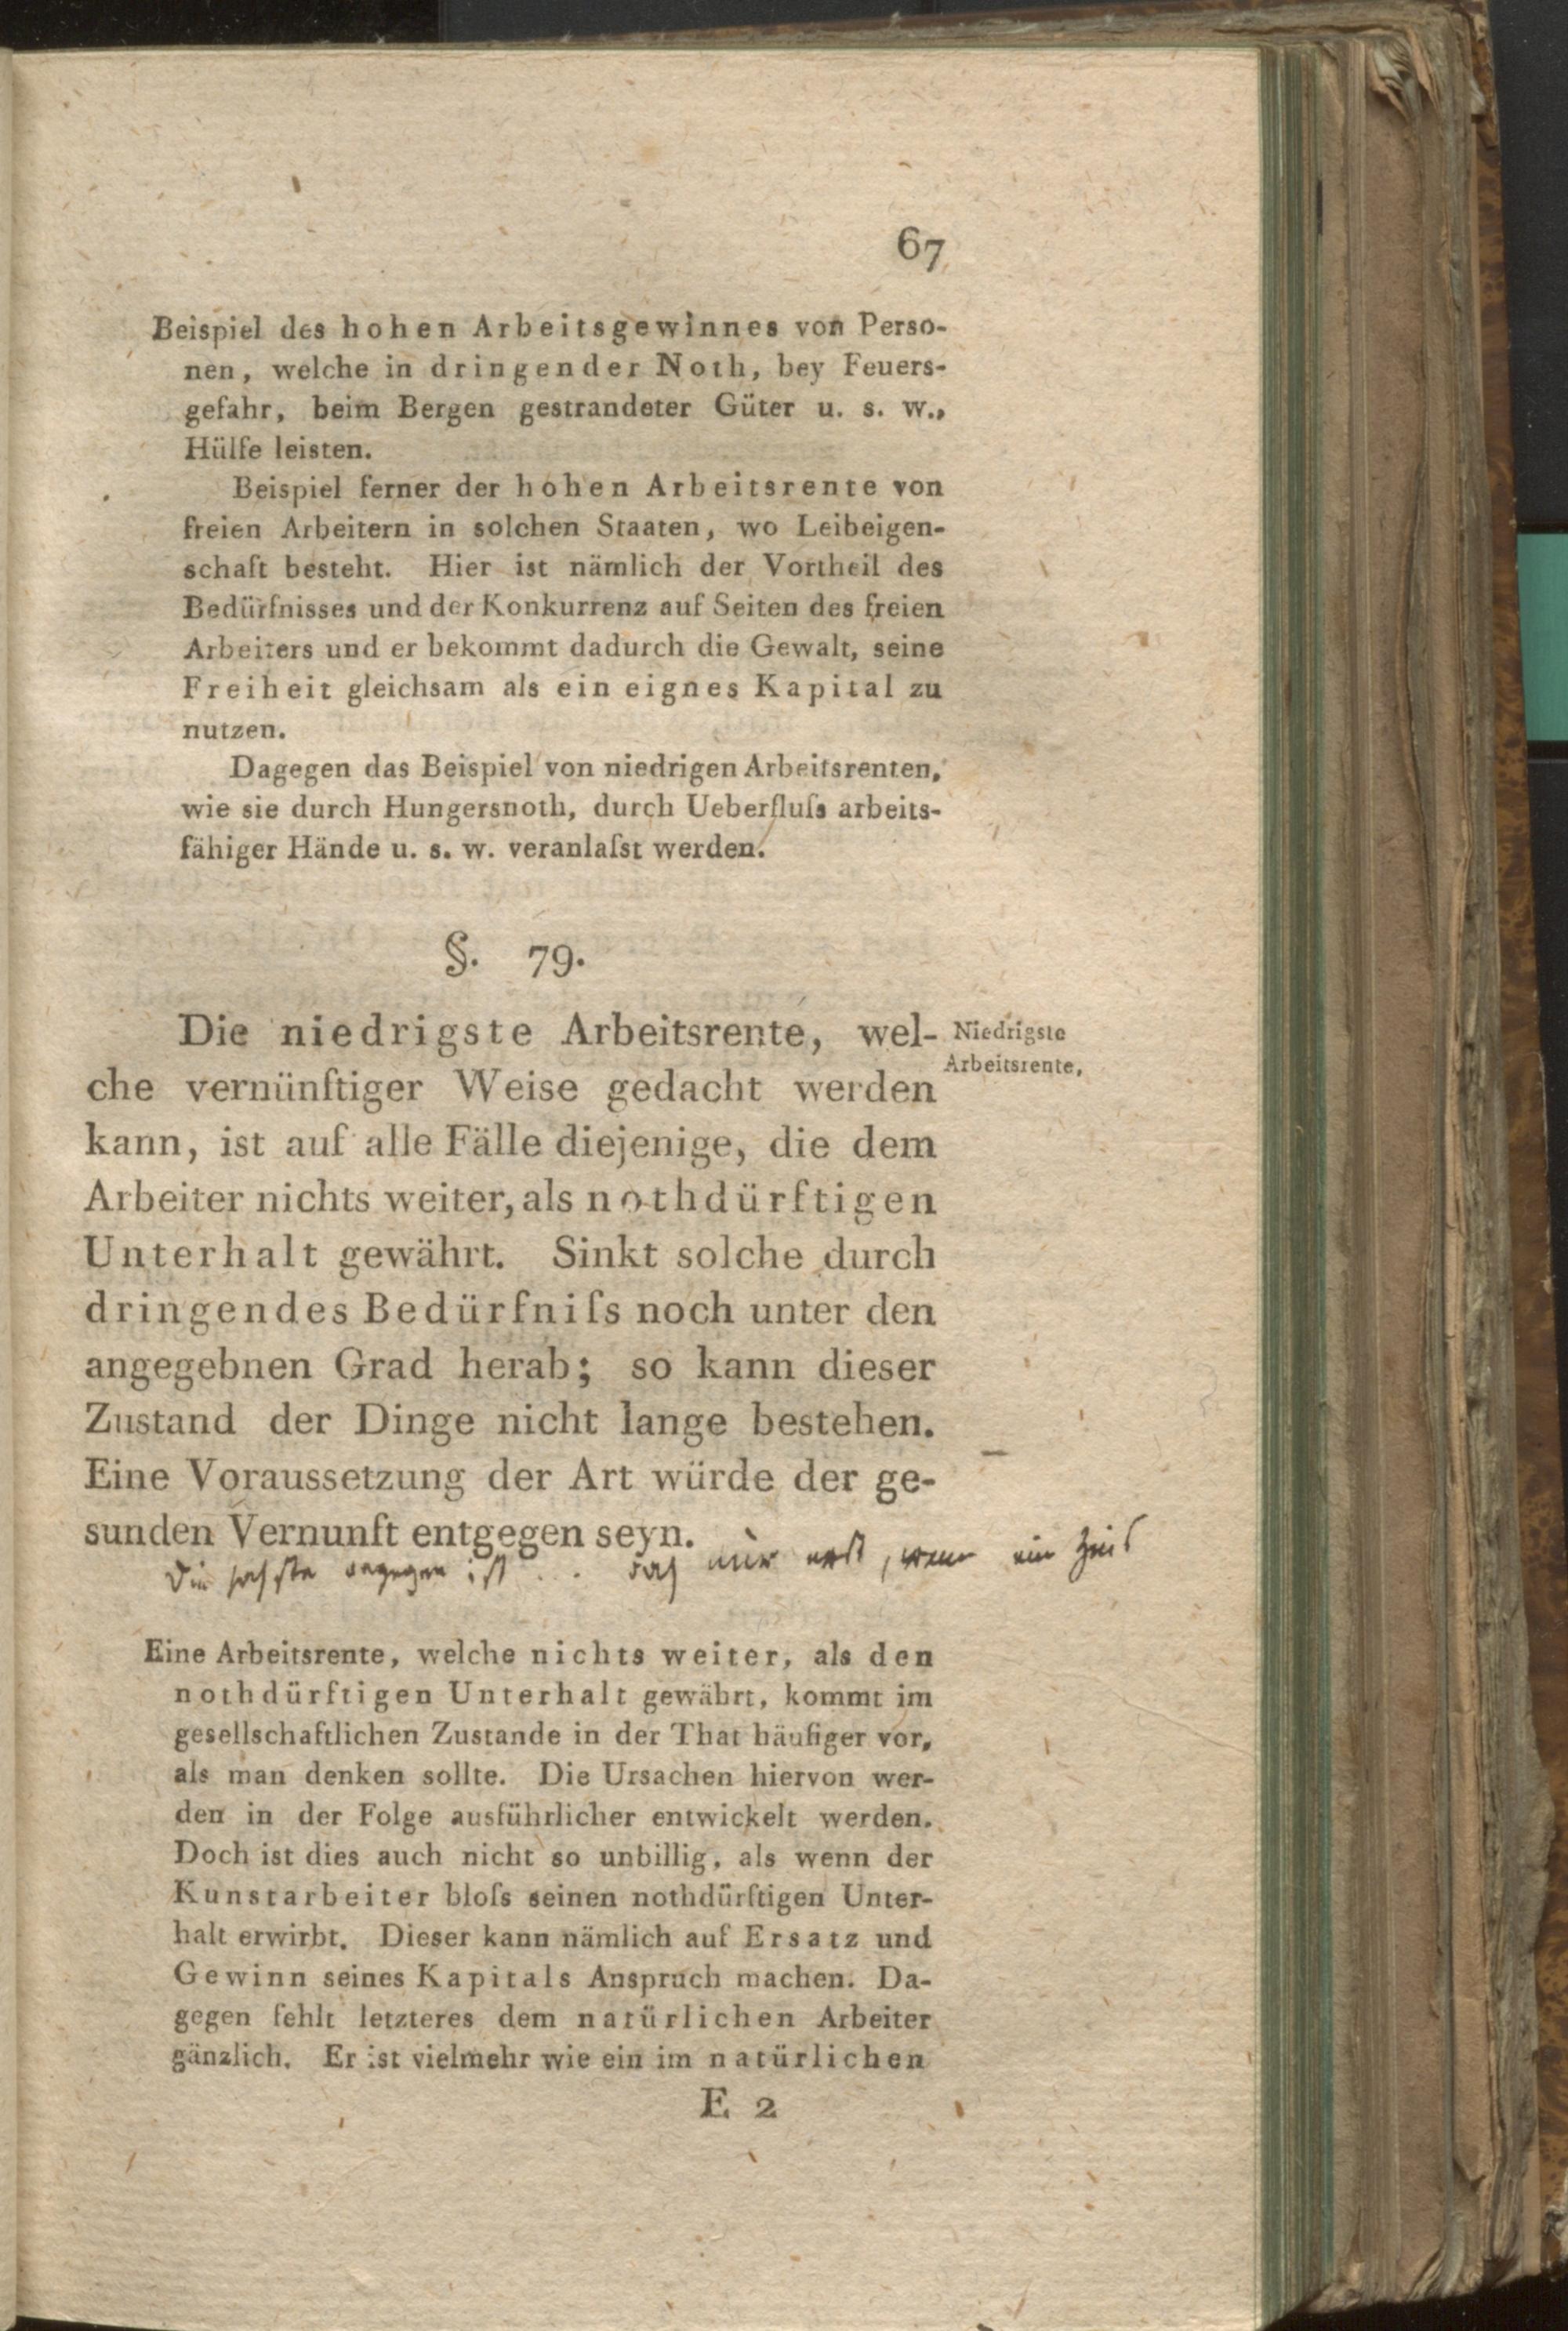 67
Beispiel des hohen Arbeitsgewinnes von Perso-
nen, welche in dringender Noth, bey Feuers-
gefahr, beim Bergen gestrandeter Güter u. s. w.,
Hülfe leisten.
Beispiel ferner der hohen Arbeitsrente von
freien Arbeitern in solchen Staaten, wo Leibeigen-
schaft besteht. Hier ist nämlich der Vortheil des
Bedürfnisses und der Konkurrenz auf Seiten des freien
Arbeiters und er bekommt dadurch die Gewalt, seine
Freiheit gleichsam als ein eignes Kapital zu
nutzen.
Dagegen das Beispiel von niedrigen Arbeitsrenten,
wie sie durch Hungersnoth, durch Ueberfluſs arbeits-
fähiger Hände u. s. w. veranlaſst werden.
§. 79.
Die niedrigste Arbeitsrente, wel-
Niedrigste
Arbeitsrente,
che vernünftiger Weise gedacht werden
kann, ist auf alle Fälle diejenige, die dem
Arbeiter nichts weiter, als nothdürftigen
Unterhalt gewährt. Sinkt solche durch
dringendes Bedürfniſs noch unter den
angegebnen Grad herab; so kann dieser
Zustand der Dinge nicht lange bestehen.
Eine Voraussetzung der Art würde der ge-
sunden Vernunft entgegen seyn.
Die höchste dagegen ist ... , wenn ein
Eine Arbeitsrente, welche nichts weiter, als den
nothdürftigen Unterhalt gewährt, kommt im
gesellschaftlichen Zustande in der That häufiger vor,
als man denken sollte. Die Ursachen hiervon wer-
den in der Folge ausführlicher entwickelt werden.
Doch ist dies auch nicht so unbillig, als wenn der
Kunstarbeiter bloſs seinen nothdürftigen Unter-
halt erwirbt. Dieser kann nämlich auf Ersatz und
Gewinn seines Kapitals Anspruch machen. Da-
gegen fehlt letzteres dem natürlichen Arbeiter
gänzlich. Er ist vielmehr wie ein im natürlichen
E 2